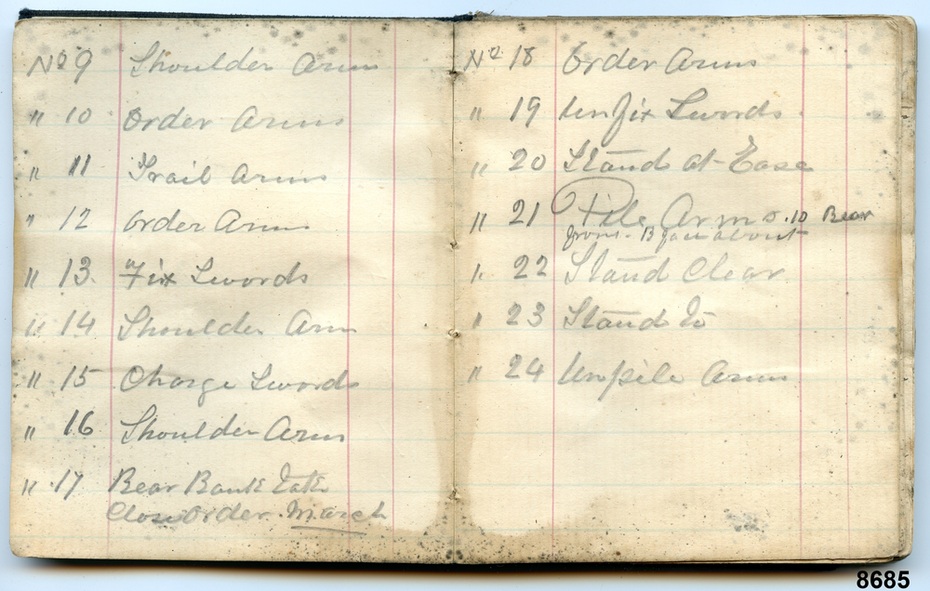 No 9 Shoulder Arms
" 10 Order Arms
" 11 Trail Arms
" 12 Order Arms
" 13. Fix Swords
" 14 Shoulder Arm
" 15 Charge Swords
" 16 Shoulder Arms
" 17 Rear Rank Take
Close Order March
No 18 Order Arms
" 19 Unfix Swords
" 20 Stand at Ease
" 21 Pile Arms . 10 Rear
about
" 22 Stand Clear
" 23 Stand To
" 24 Unpile Arms
8685